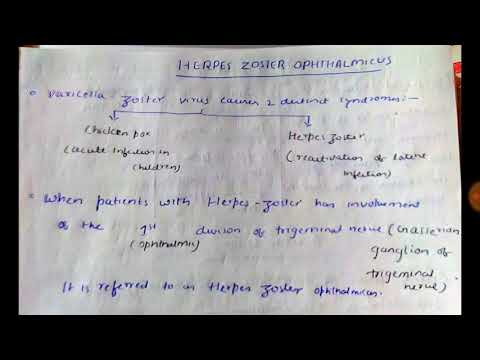 HERPES ZOSTER OPHTHALMICUS
Varicella zoster virus causes 2 distinct syndromes:-
Chicken pox
(acute infection in
children)
Herpes zoster
(reactivation of latent
infection)
When patients with Herpes-zoster has involvement
of the 1st division of trigeminal nerve (Gasserian
(ophthalmic)
ganglion of
trigeminal
nerve)
It is referred to as Herpes zoster ophthalmicus.